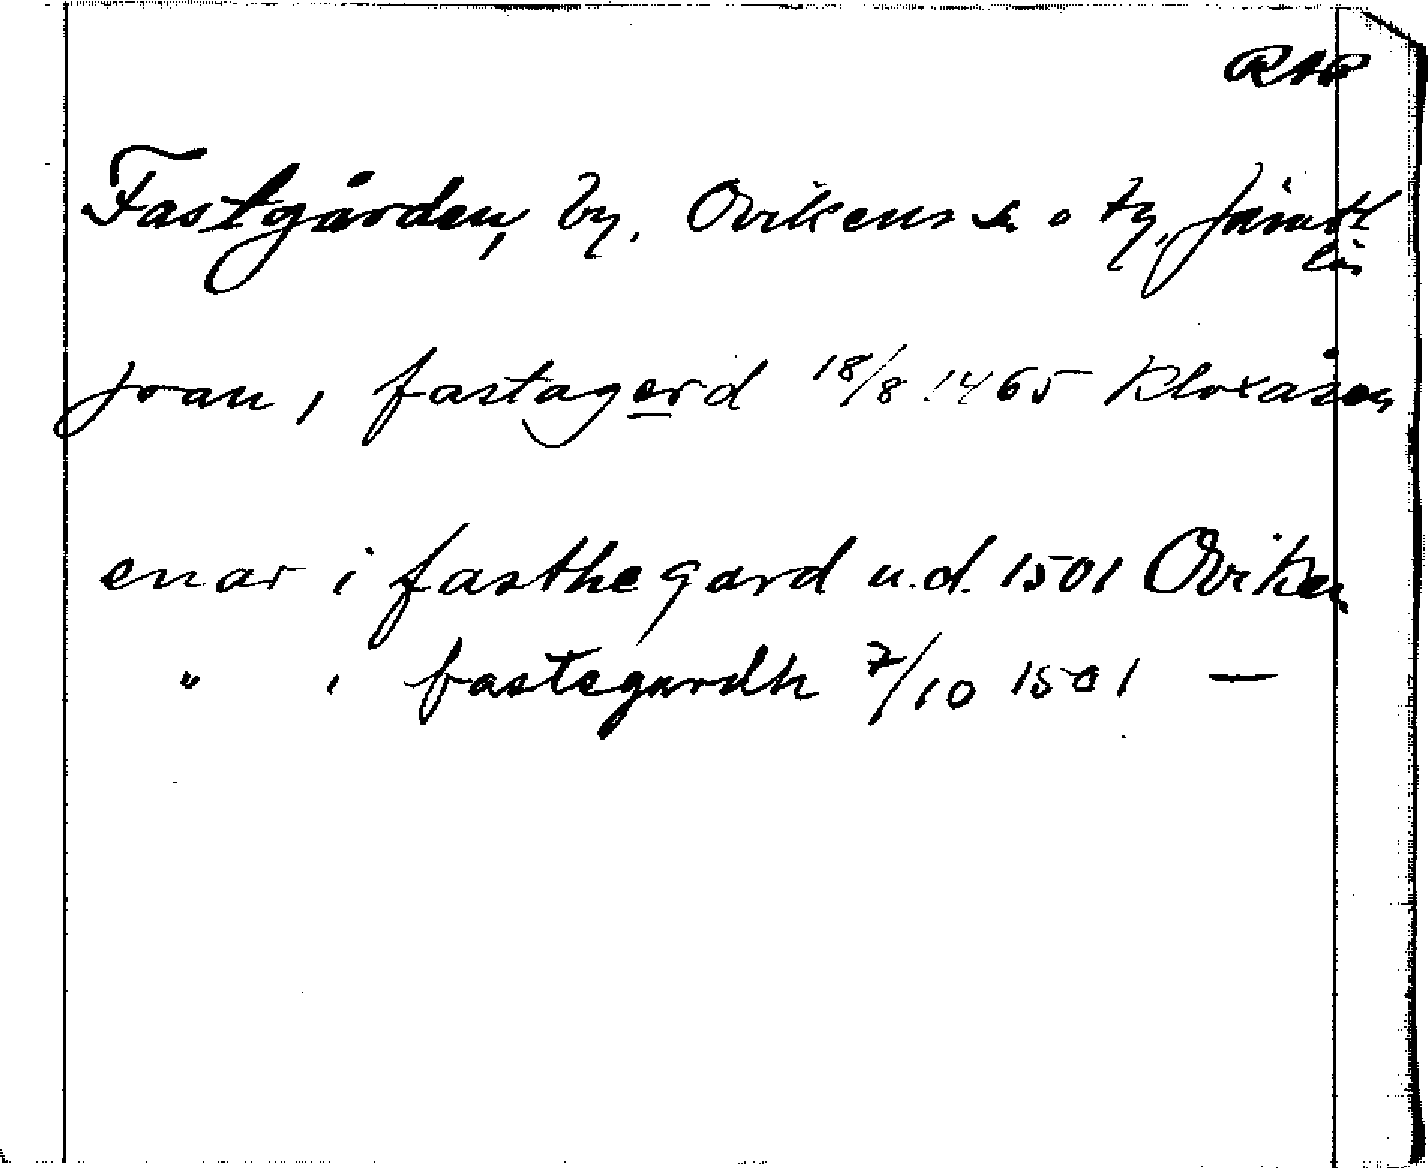 RAP
Fastgården, by, Ovikens sn o tg, Jämtl
län
joan i fastagerd 18/8 1465 Kloxåsen
enar i fasthegard u.d. 1501 Oviken
" i fastegardh 7/10 1501 —